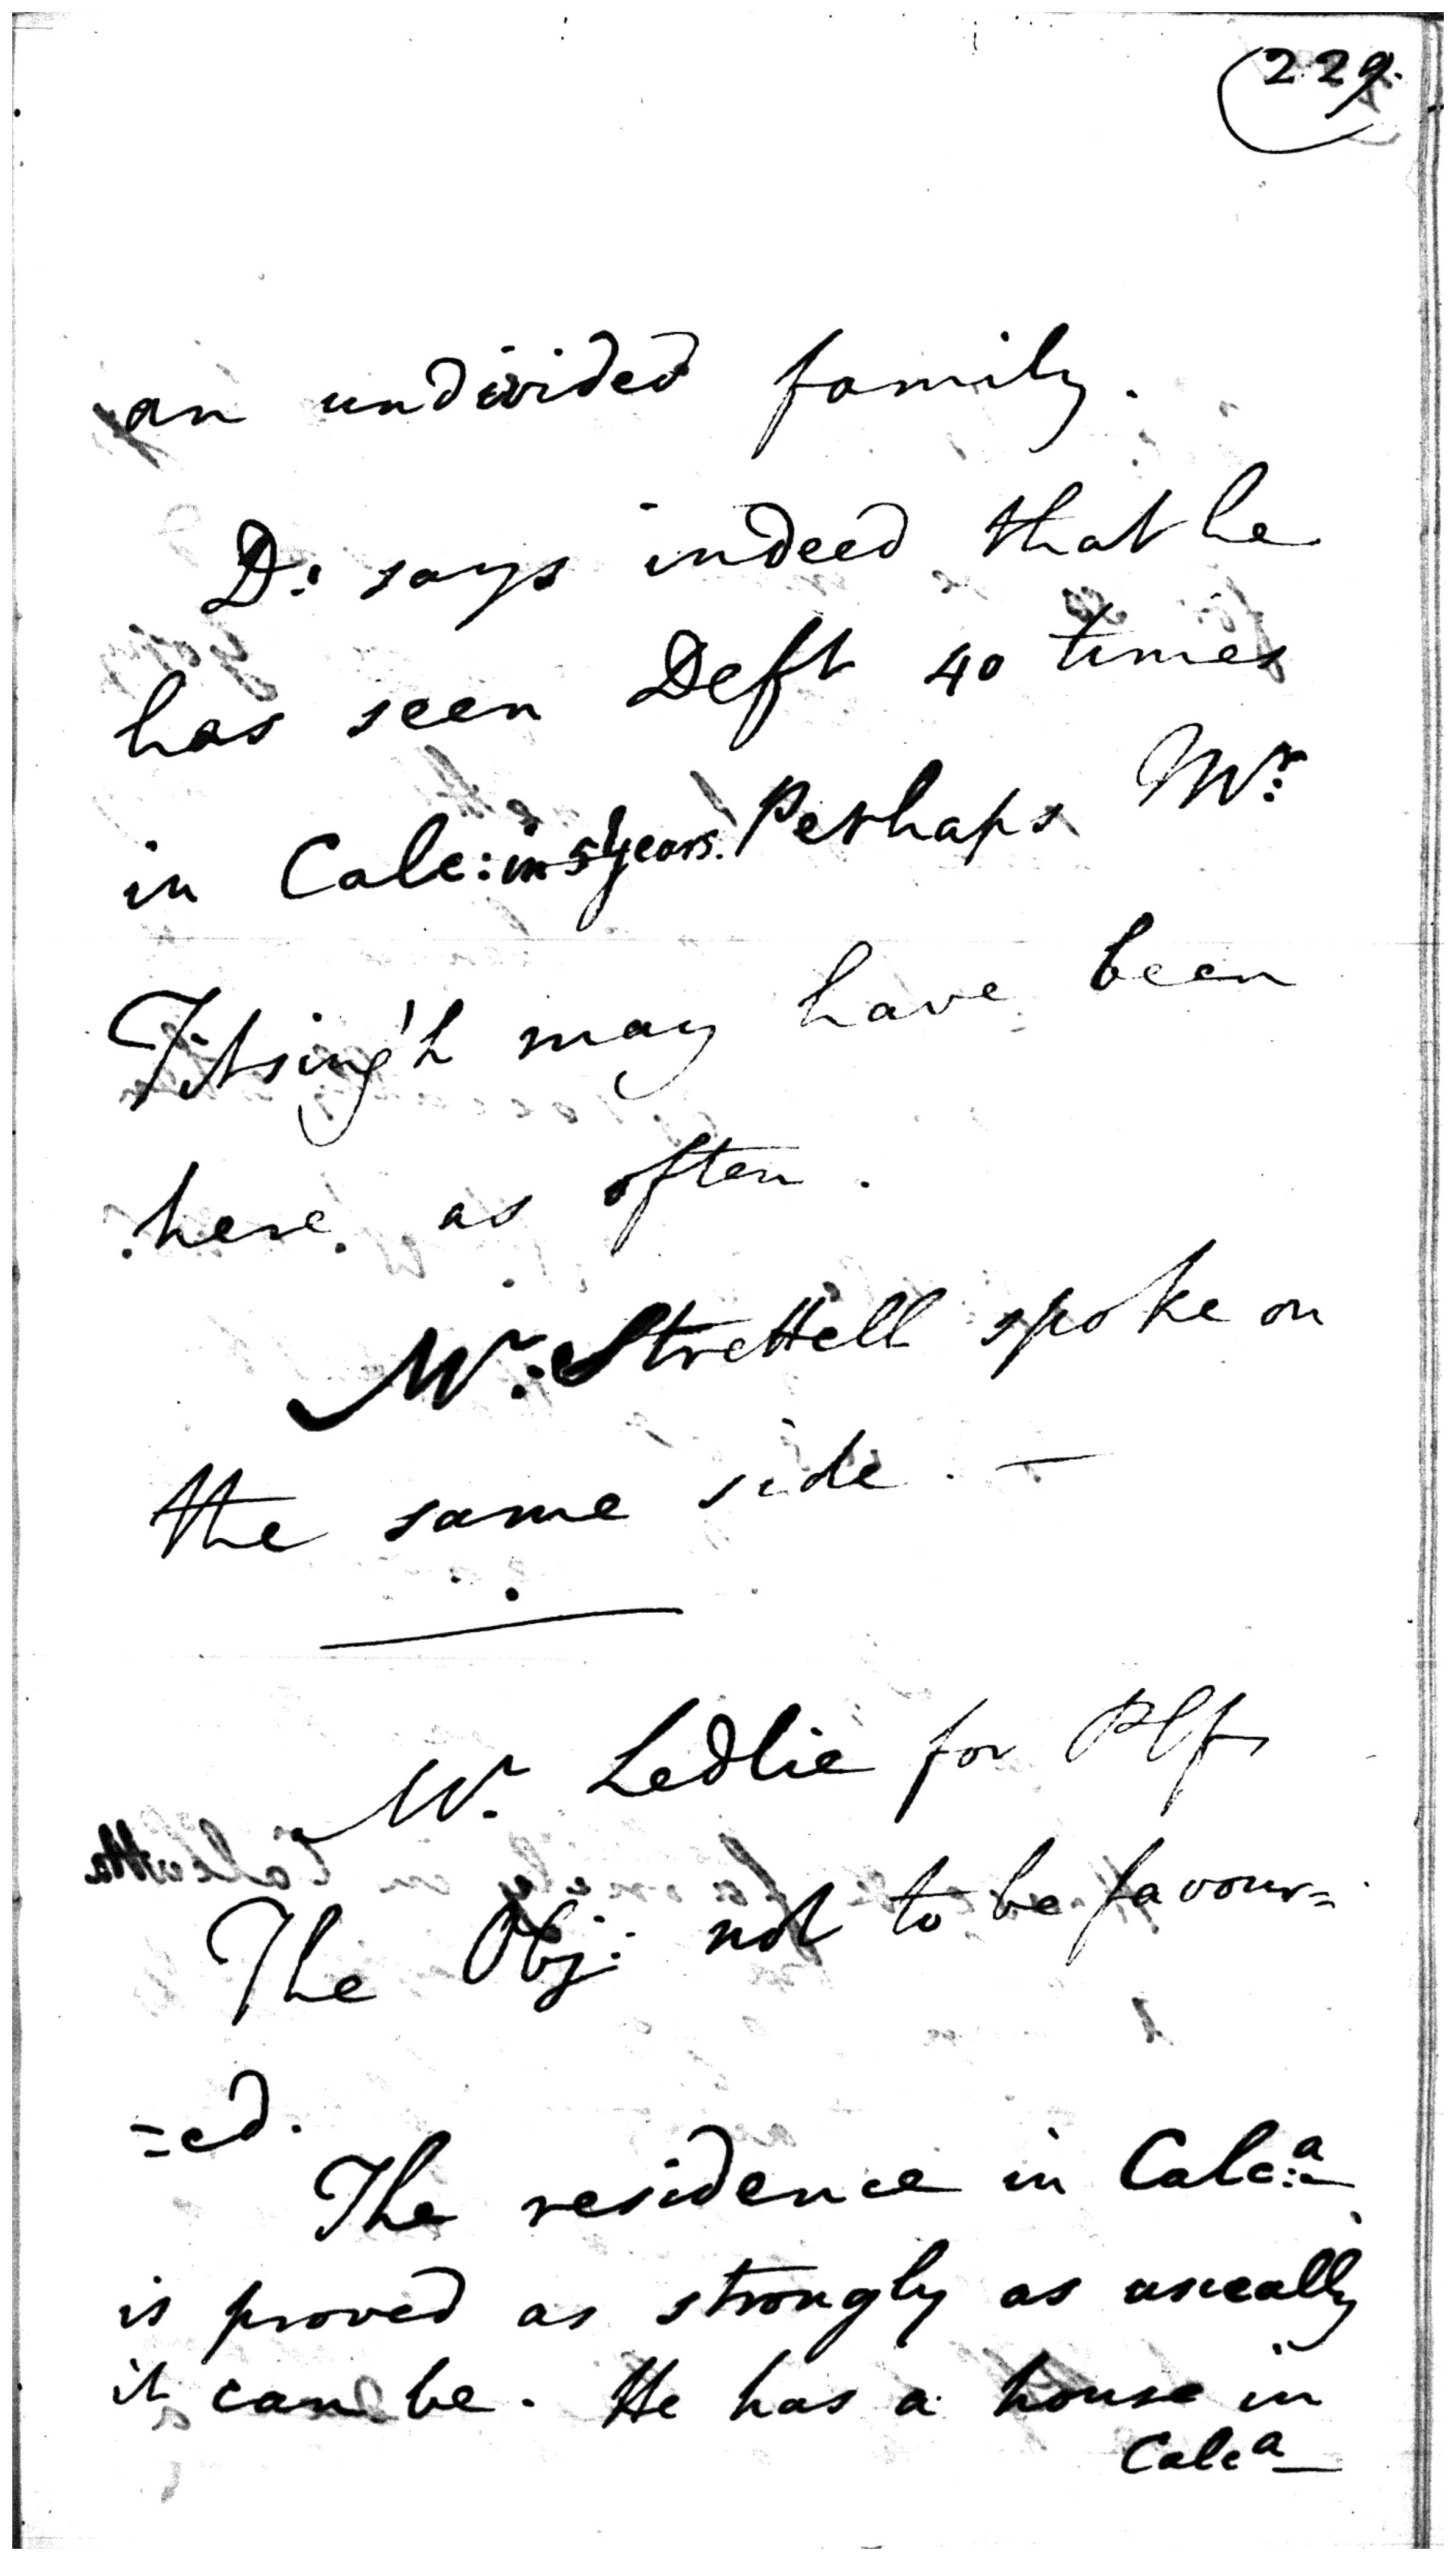 229.
an undivided family.
D: says indeed that he
has seen Deft 40 times
in Calc: in 5 years. Perhaps Mr:
Titsing'h may have been
here as often.
Mr: Strettell spoke on
the same side. —
Mr. Ledlie for Plf
The Obj: not to be favour=
=ed.
The residence in Calc:a
is proved as strongly as usually
it can be. He has a house in
Calca